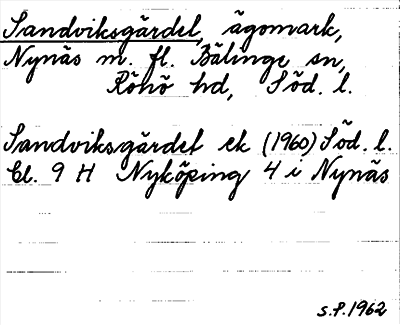 Sandviksgärdet, ägomark,
Nynäs m. fl. Bälinge sn,
Rönö hd, Söd. l.
Sandviksgärdet ek (1960) Söd. l.
Bl. 9 H Nyköping 4 i Nynäs
S.P. 1962